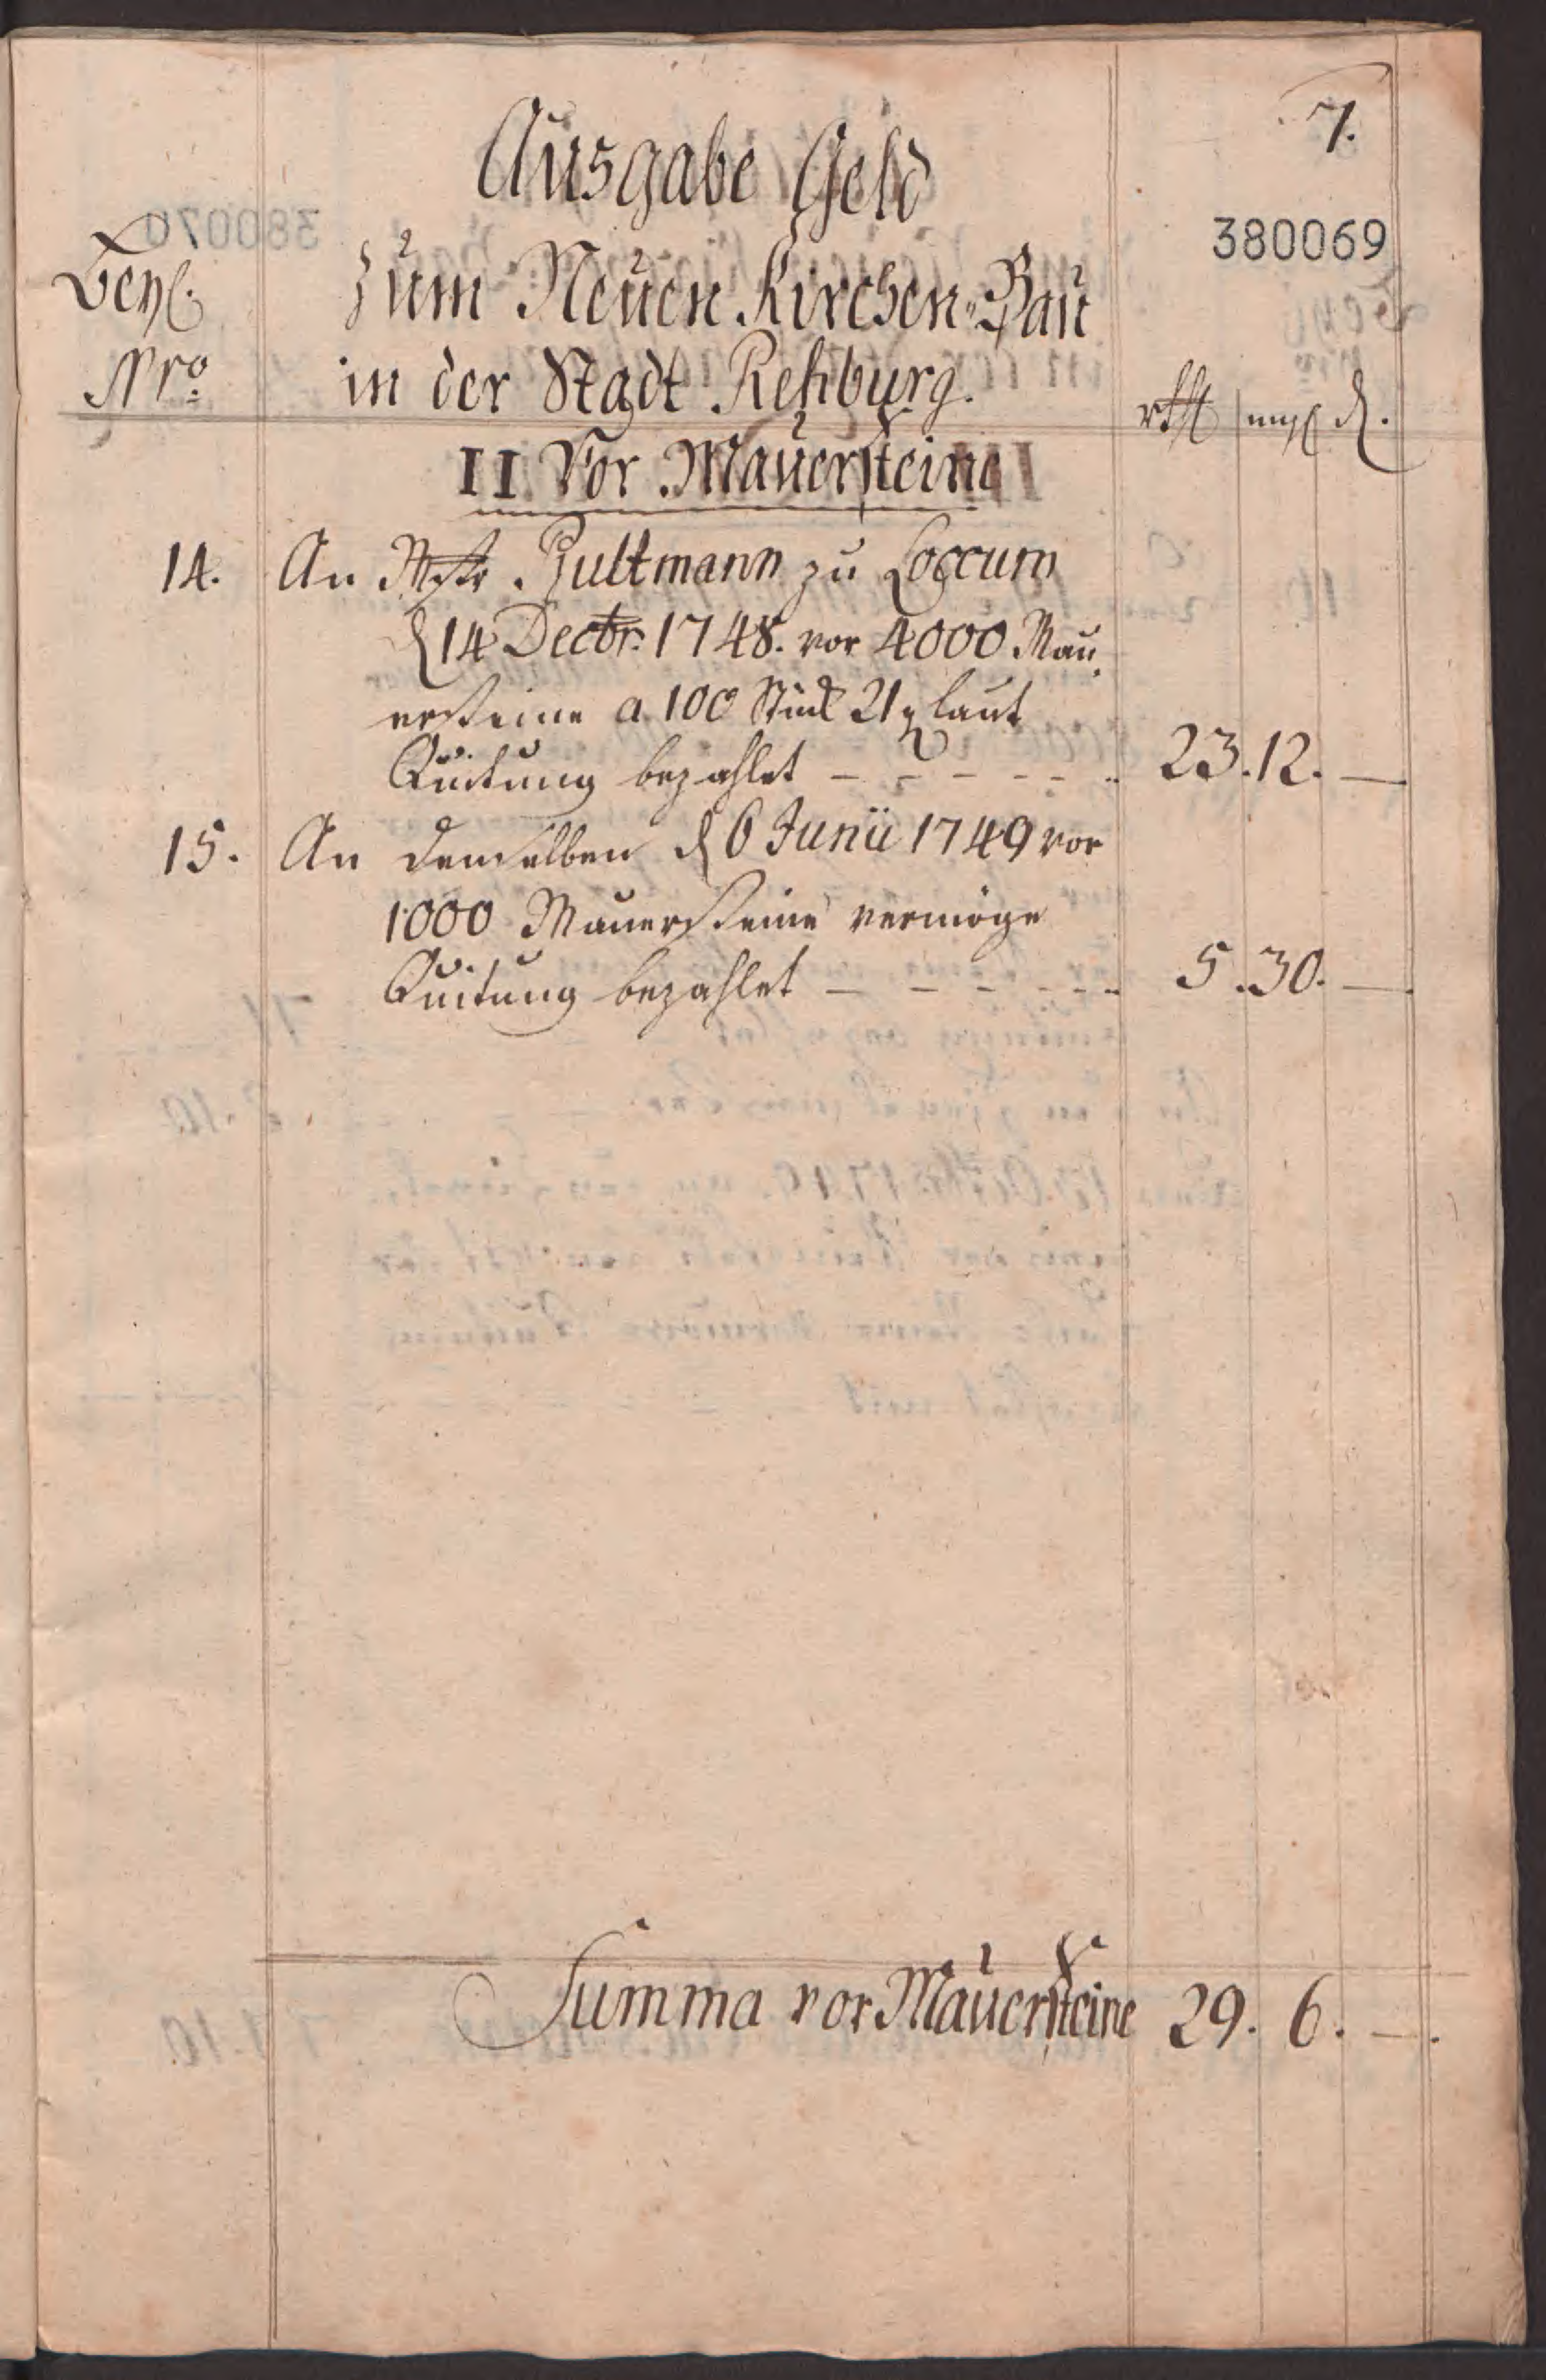 7.
Ausgabe Geld
380069
Beyl. zum Neuen Kirchen-Bau
Nro. in der Stadt Rehburg. rthl mgl d.
II Vor Mauersteine
14. An Mstr Bultmann zu Loccum
d 14 Decbr. 1748. vor 4000 Mau
ersteine a 100 Stück 21 g laut
Quitung bezahlet – – – – – – 23. 12. —
15. An demselben d 6 Junii 1749 vor
1000 Mauersteine vermöge
Quitung bezahlet – – – – – – 5. 30. —
Summa vor Mauersteine 29. 6. —.